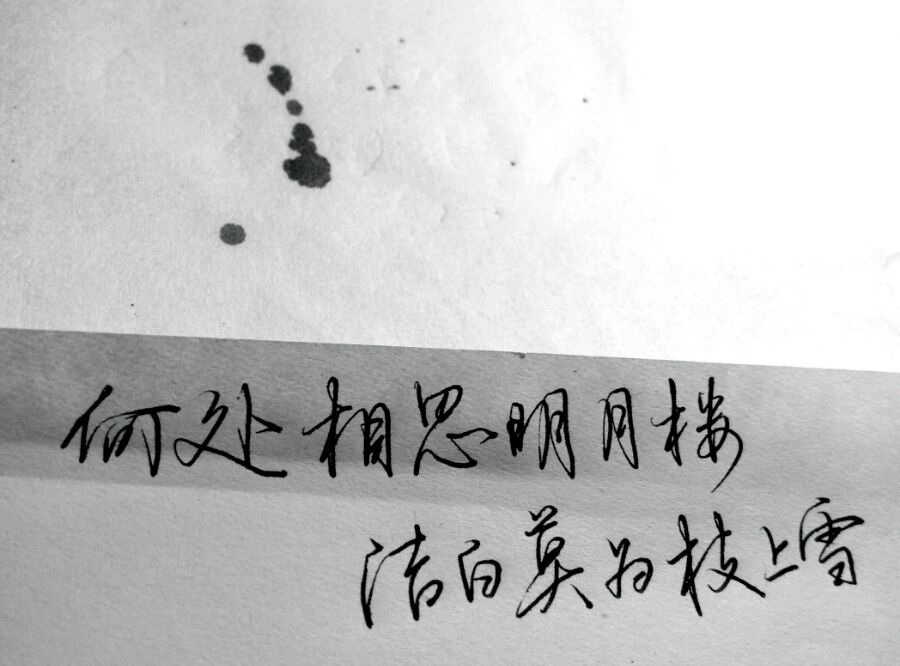 何处相思明月楼
洁白莫为枝上雪